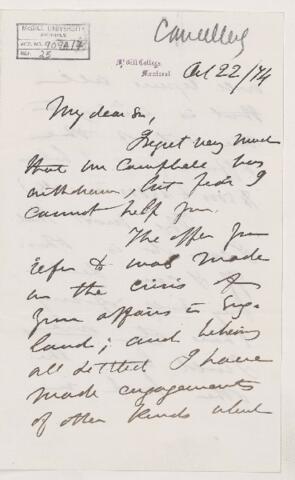 McGILL UNIVERSITY
ARCHIVES
ACC. NO. 909A/7
REF. 25
McGill College,
Montreal
Oct 22/74
My dear Sir,
I regret very much
that Mr Campbell has
withdrawn, but fear I
cannot help you.
The offer you
refer to was made
in the crisis of
your affairs in Eng-
land; and believing
all settled I have
made engagements
of other kinds which